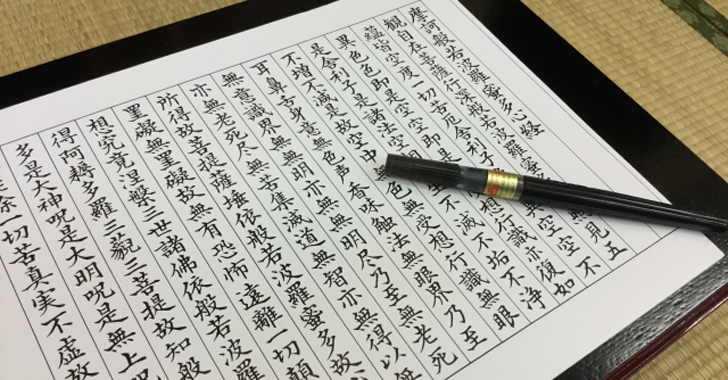 摩訶般若波羅蜜多心経
観自在菩薩行深般若波羅蜜見五
蘊皆空度一切苦厄舎利子空空不
異色色即是空空即是想行識亦復如
是舎利子是諸法空不滅不垢不浄
不増不減是故空中色無受想行識無眼
耳鼻舌身意無色声香味触法無眼界乃至
無意識界無無明亦無無明尽乃至無老死
亦無老死尽無苦集滅道無智亦無得以無
所得故菩提薩埵依般若波羅蜜多故心
罣礙無罣礙故無有恐怖遠離一切顛
想究竟涅槃三世諸佛依般若波羅
得阿耨多羅三藐三菩提故知般
多是大神呪是大明呪是無上呪
除一切苦真実不虚故